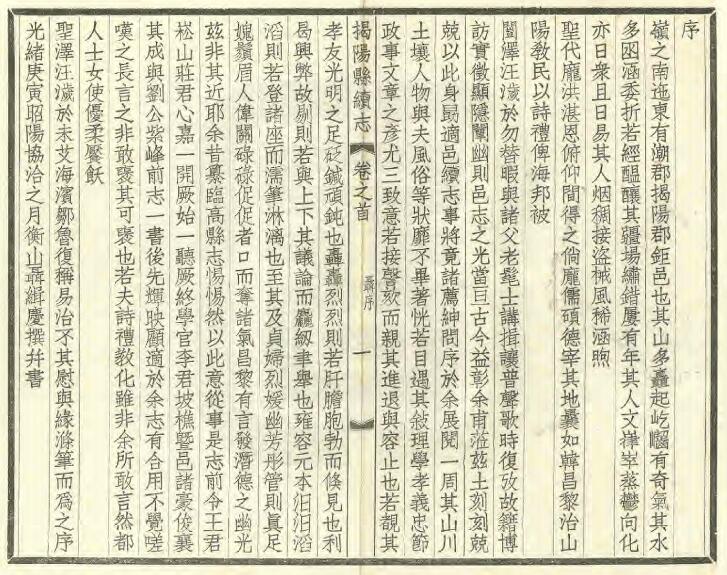 序
嶺之南迤東有潮郡揭陽郡鉅邑也其山多矗起屹𡾟有奇氣其水
多囦涵委折若經醞釀其疆場繡錯屢有年其人文嵂崒蒸鬱向化
亦日衆且日易其人烟稠接盜械風稀涵煦
聖代龐洪湛恩俯仰間得之倘龐儒碩德宰其地曩如韓昌黎治山
陽敎民以詩禮俾海邦被
闓澤汪濊於勿替暇與諸父老髦士講揖讓普聲歌時復攷故籍博
訪實徵顯隱闡幽則邑志之光當亘古今益彰余甫蒞茲土刻刻兢
兢以此身勗適邑續志事將竟諸薦紳問序於余展閱一周其山川
土壤人物與夫風俗等狀靡不畢著恍若目遇其敍理學孝義忠節
政事文章之彥尤三致意若接謦欬而親其進退與容止也若覩其
揭陽縣續志
卷之首
聶序
一
孝友光明之足砭鍼頑鈍也轟轟烈烈則若肝膽胞勃而倏見也利
曷興弊故剔則若與上下其議論而龖紉聿舉也雍容元本汩汩滔
滔則若登諸座而濡筆淋漓也至其及貞婦烈媛幽芳彤管則眞足
媿鬚眉人偉關碌碌促促者口而奪諸氣昌黎有言發潛德之幽光
茲非其近耶余昔纂臨高縣志惕惕然以此意從事是志前令王君
崧山莊君心嘉一開厥始一聽厥終學官李君坡樵曁邑諸豪俊襄
其成與劉公紫峰前志一書後先輝映顧適於余志有合用不覺嗟
嘆之長言之非敢襃其可襃也若夫詩禮敎化雖非余所敢言然都
人士女使優柔饜飫
聖澤汪濊於未艾海濱鄒魯復稱易治不其慰與緣滌筆而爲之序
光緒庚寅昭陽協洽之月衡山聶緝慶撰幷書